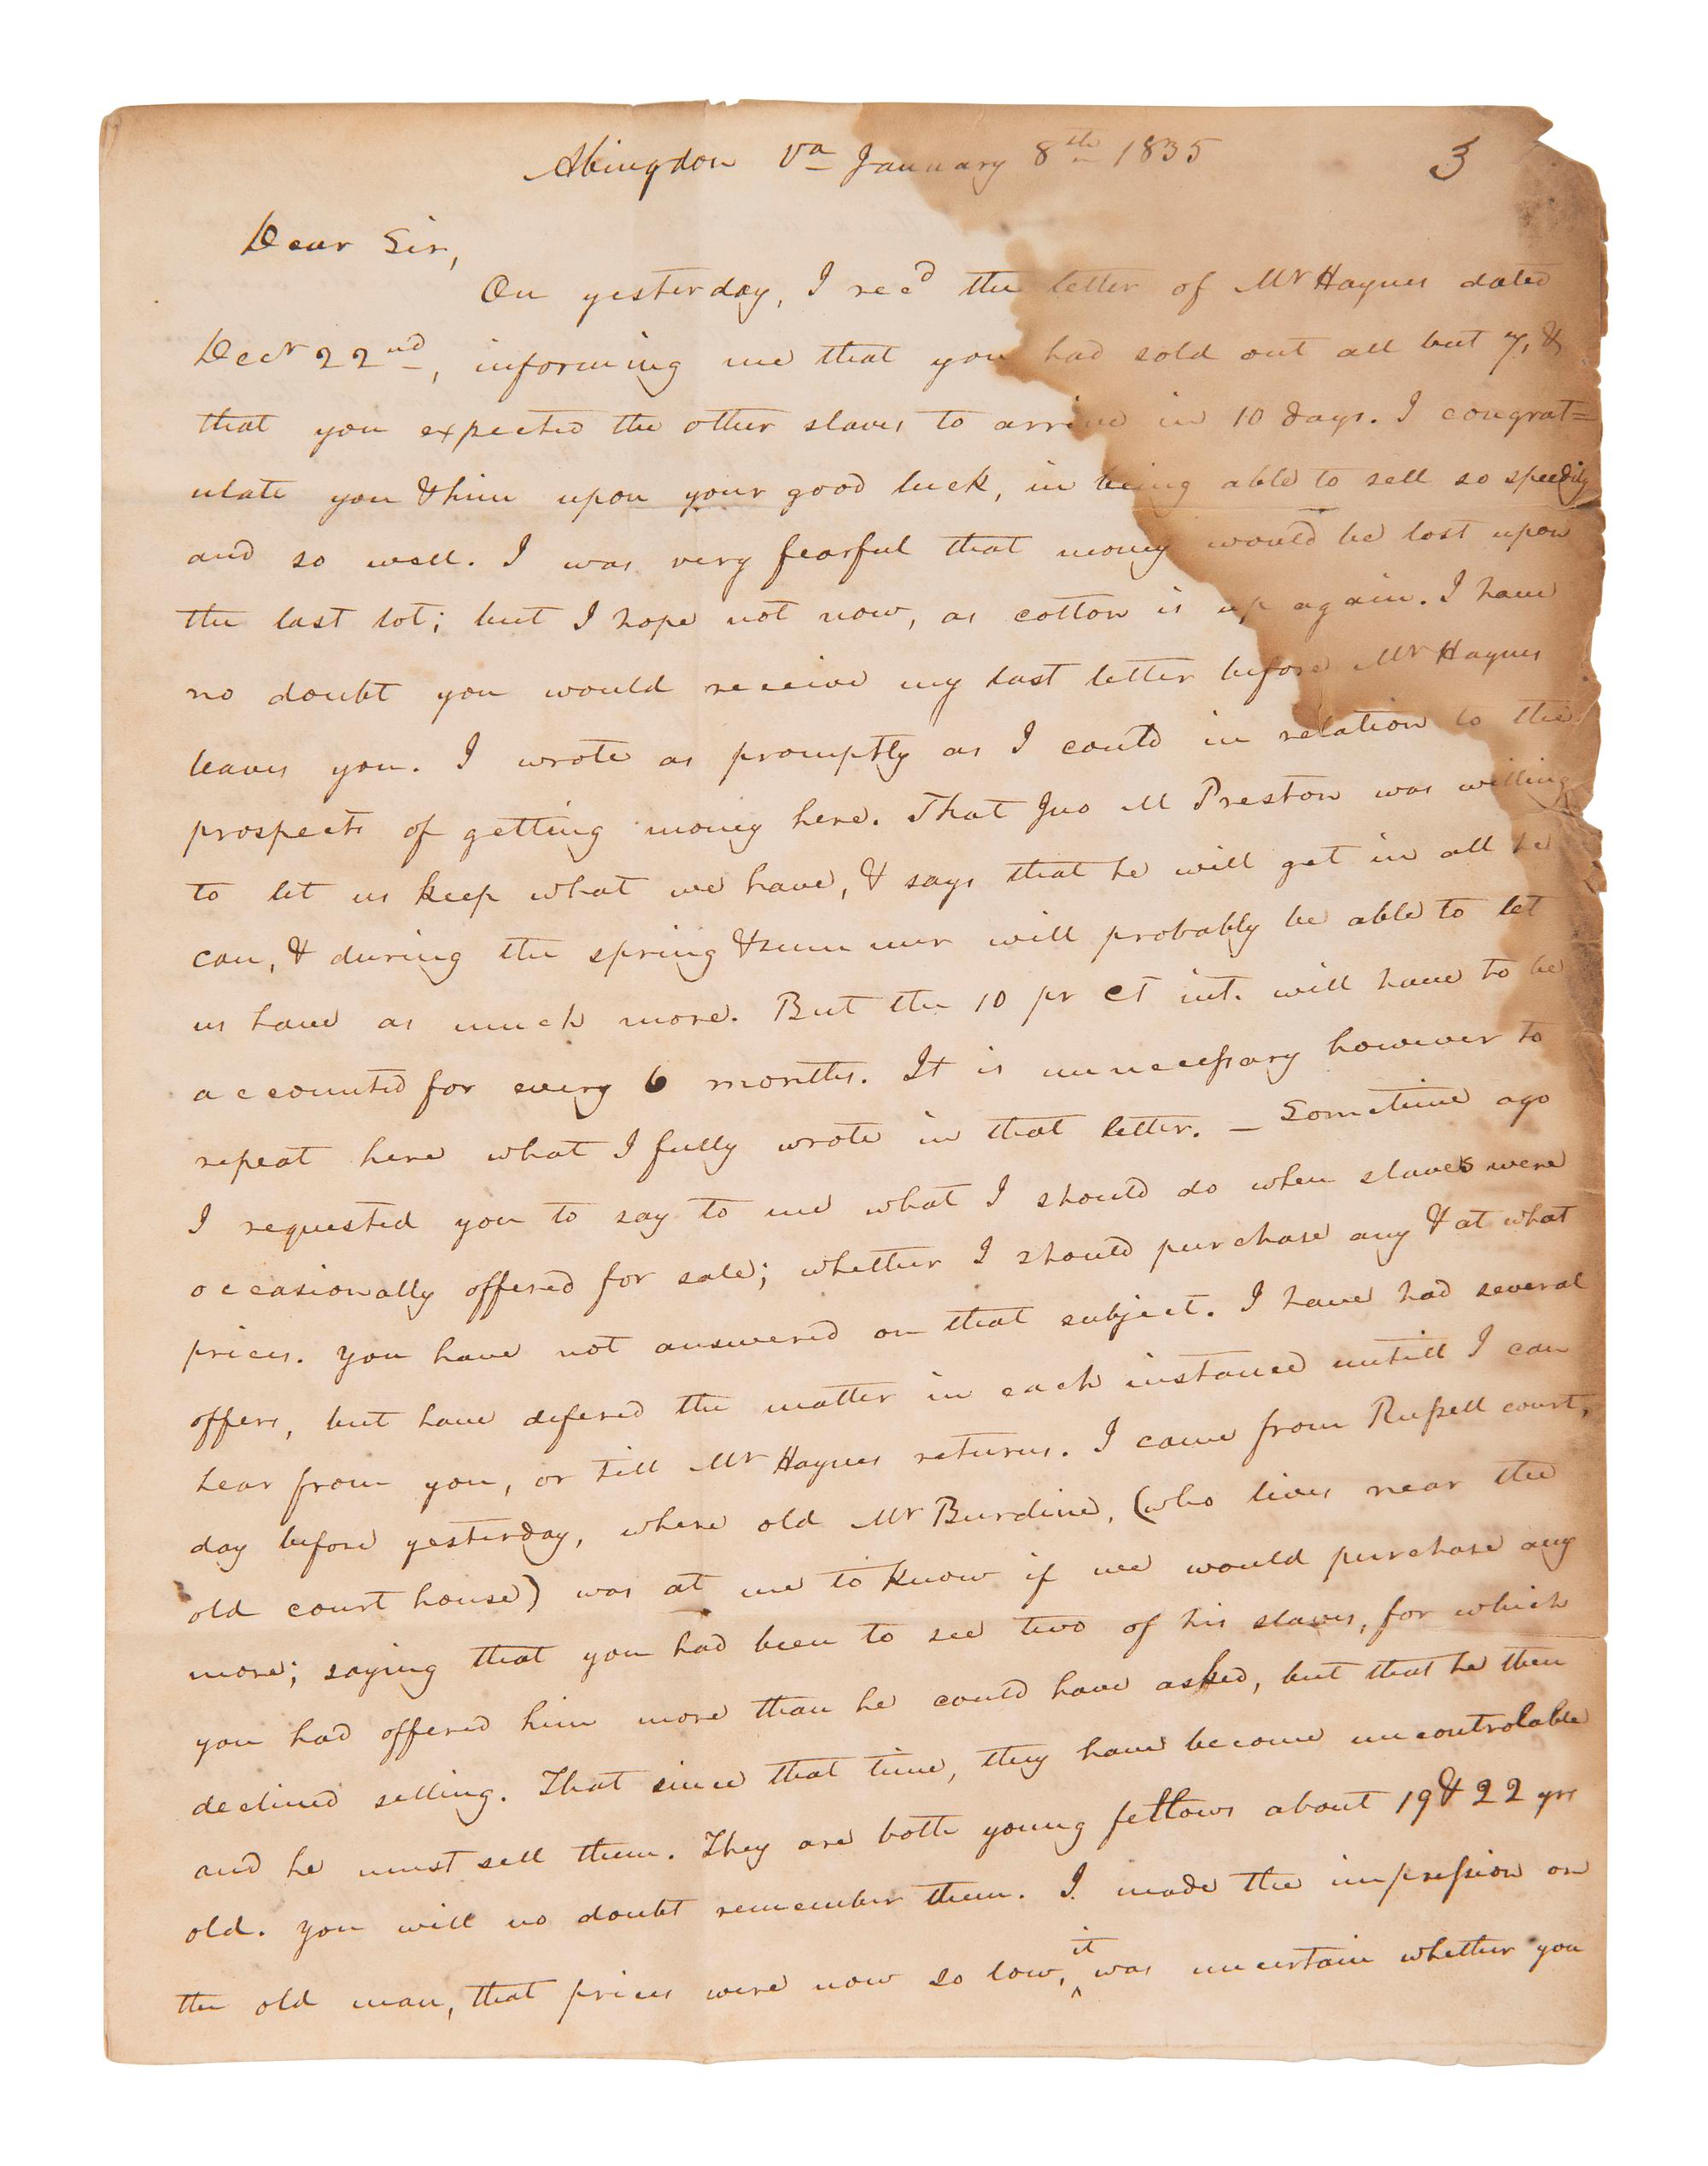 Abingdon Va January 8th 1835 3
Dear Sir,
On yesterday, I recd the letter of Mr Haynes dated
Decr 22nd, informing me that you had sold out all but 7, &
that you expected the other slaves to arrive in 10 days. I congrat=
ulate you & him upon your good luck, in being able to sell so speedily
and so well. I was very fearful that money would be lost upon
the last lot; but I hope not now, as cotton is up again. I have
no doubt you would receive my last letter before Mr Haynes
leaves you. I wrote as promptly as I could in relation to the
prospects of getting money here. That Jno M Preston was willing
to let us keep what we have, & says that he will get in all he
can, & during the spring & summer will probably be able to let
us have as much more. But the 10 pr ct int. will have to be
accounted for every 6 months. It is unnecessary however to
repeat here what I fully wrote in that letter. – Sometime ago
I requested you to say to me what I should do when slaves were
occasionally offered for sale; whether I should purchase any & at what
prices. you have not answered on that subject. I have had several
offers, but have defered the matter in each instance untill I can
hear from you, or till Mr Haynes returns. I came from Russell court,
day before yesterday, where old Mr Burdine, (who lives near the
old court house) was at me to know if we would purchase any
more; saying that you had been to see two of his slaves, for which
you had offered him more than he could have asked, but that he then
declined selling. That since that time, they have become uncontrolable
and he must sell them. They are both young fellows about 19 & 22 yrs
old. you will no doubt remember them. I made the impression on
the old man, that prices were now so low, it was uncertain whether you